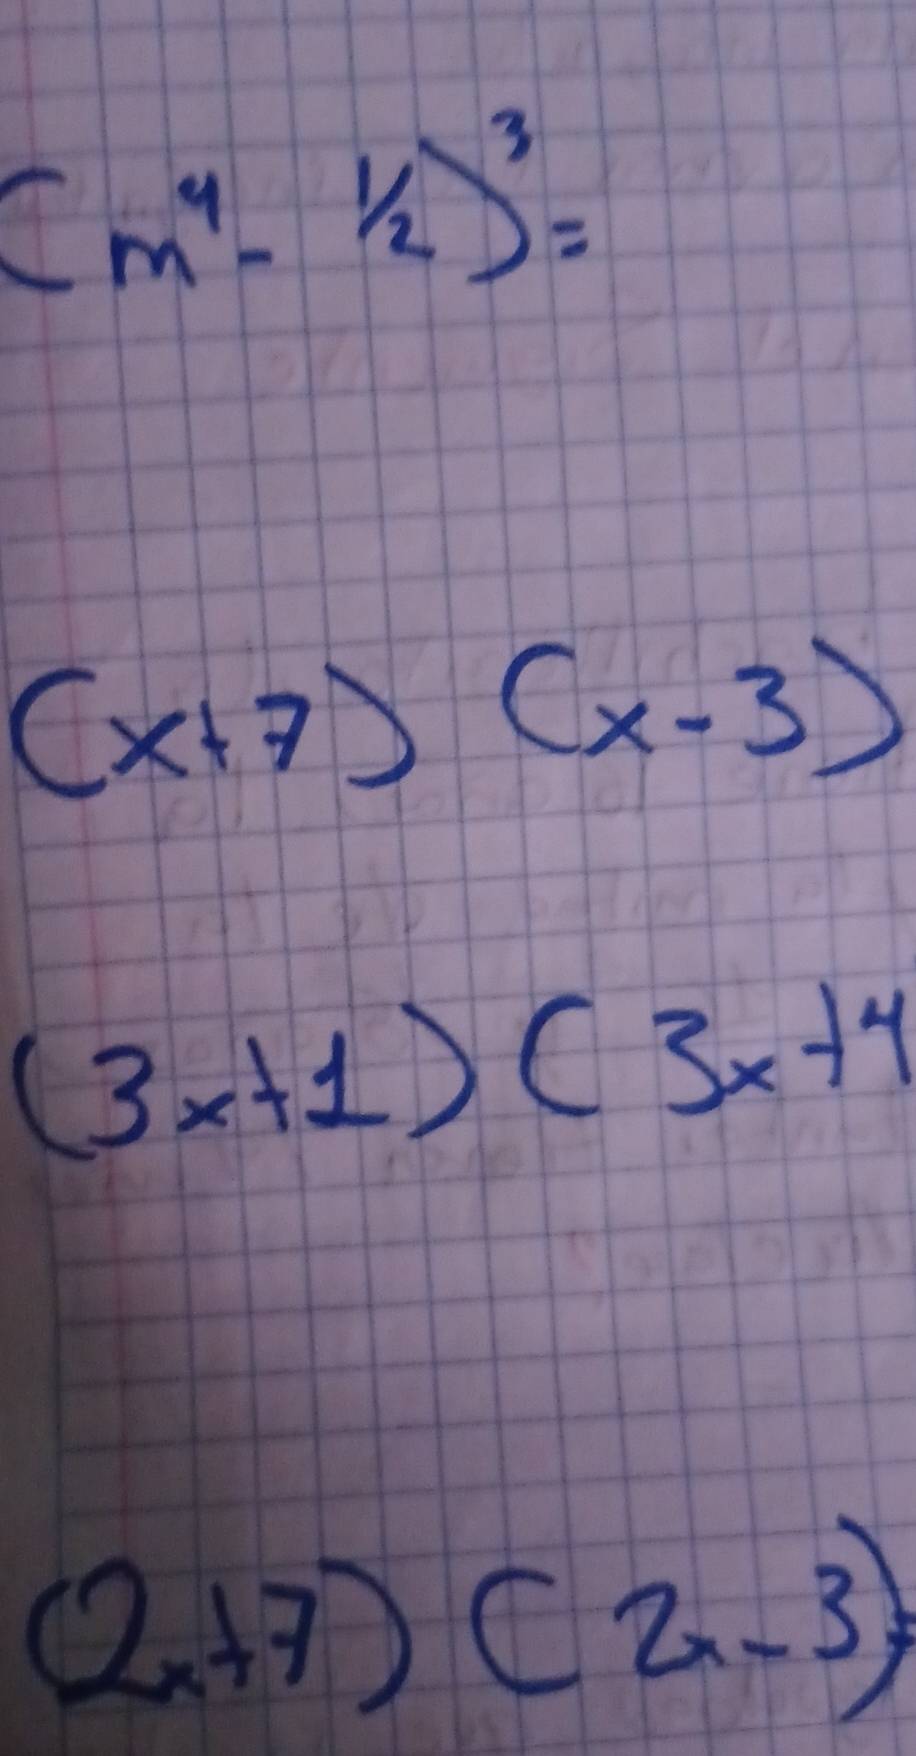 (m⁴ - 1/2)³=
(x+7) (x-3)
(3x+1) (3x+4
(2x+7) (2x-3)=